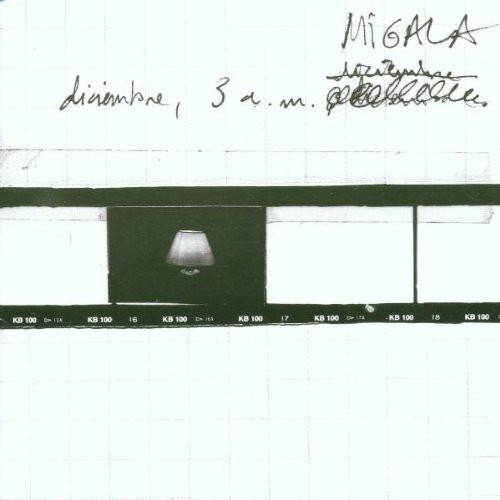 MiGALA
diciembre, 3 a.m.
KB 100 ▷ 15A KB 100 16 KB 100 ▷ 16A KB 100 17 KB 100 ▷ 17A KB 100 18 KB 100